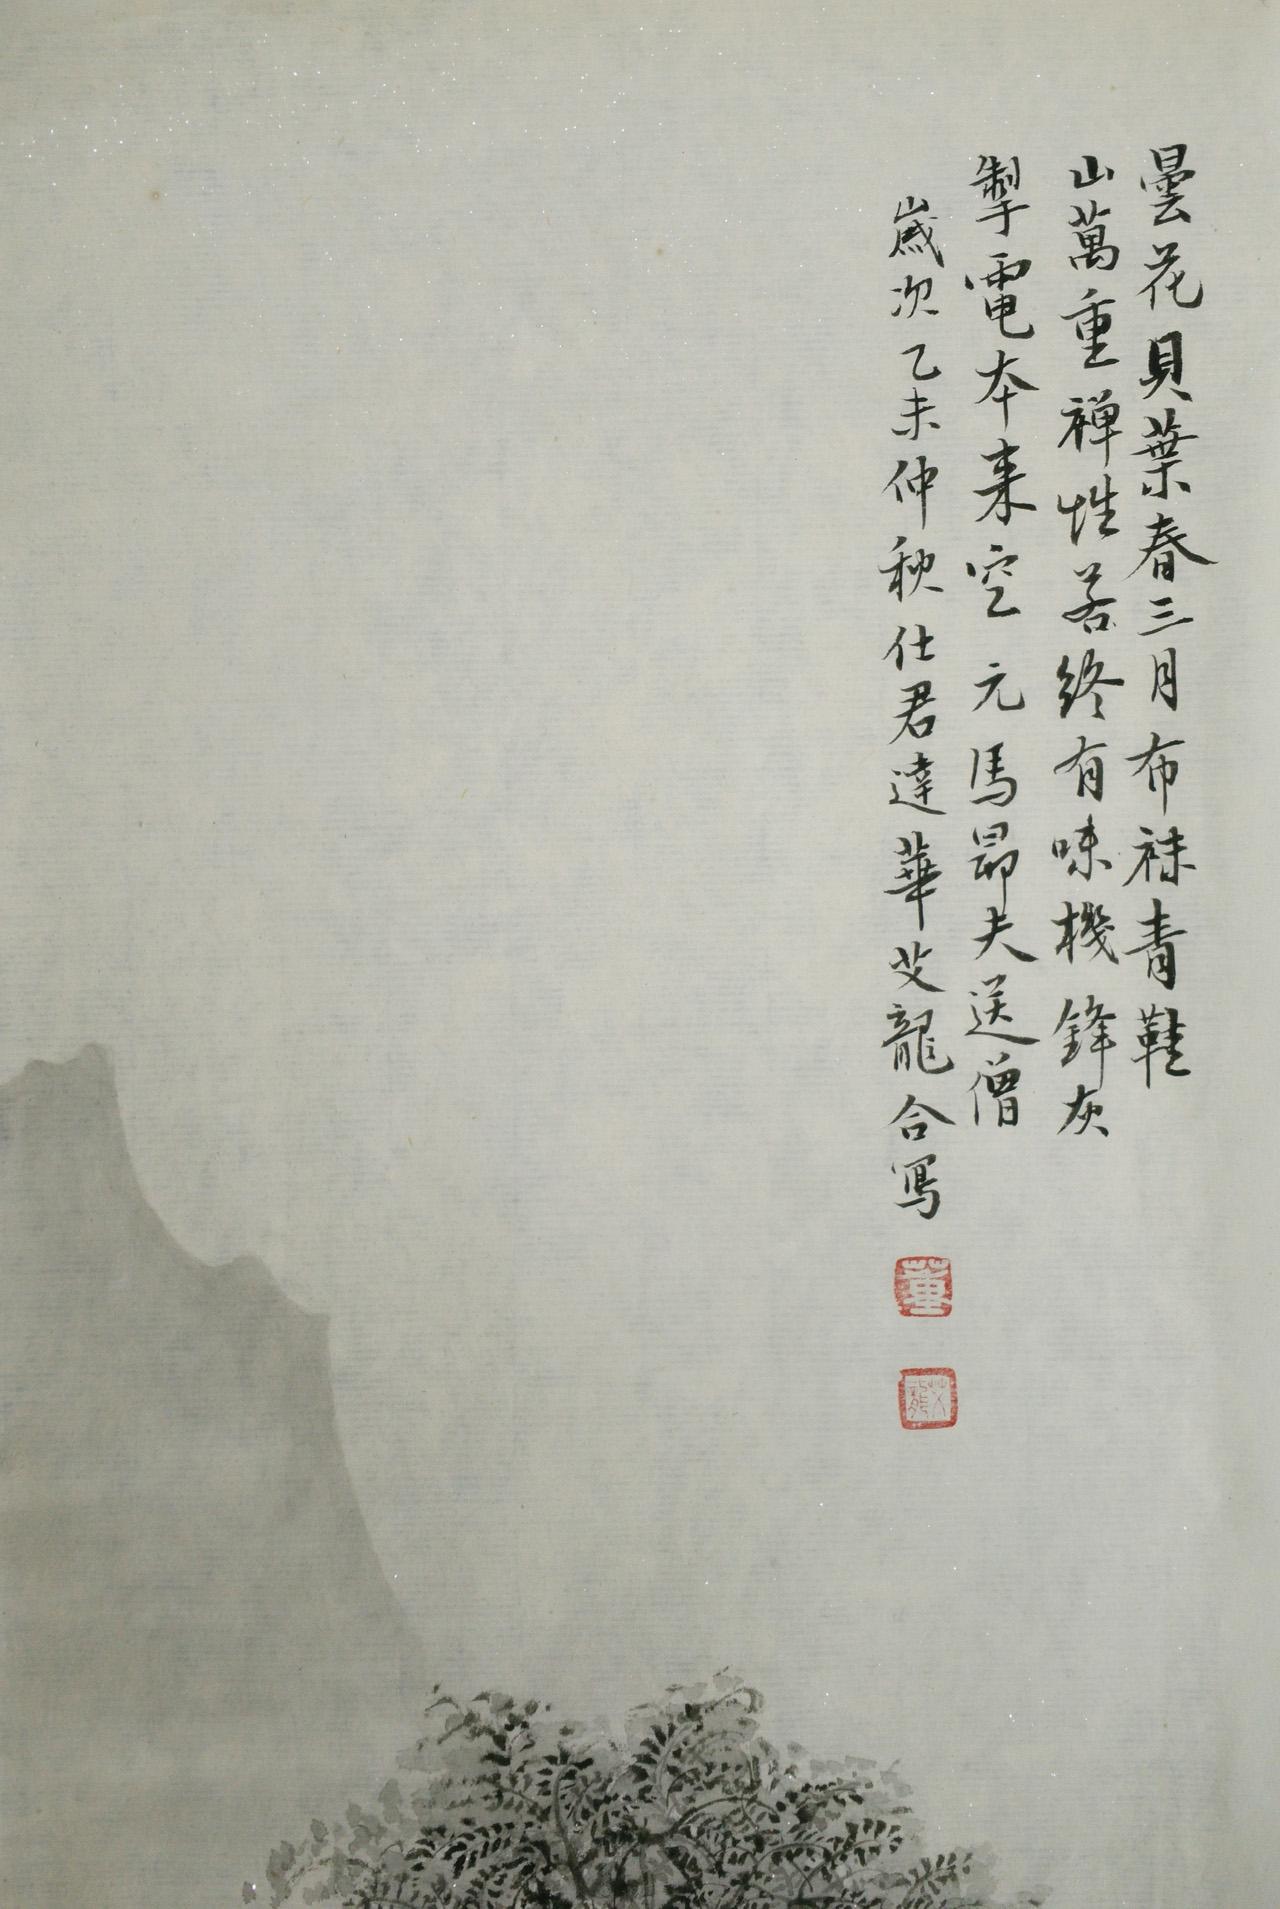 曇花貝葉春三月布襪青鞋
山萬重禅性若終有味機鋒灰
掣電本来空 元馬昴夫送僧
嵗次乙未仲秋仕君達華艾龍合寫
董
艾龍